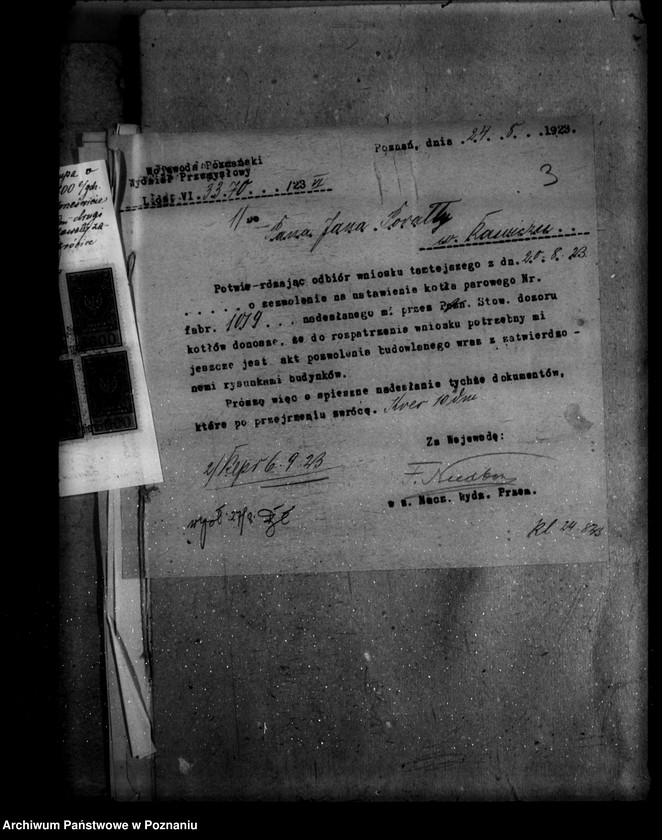 Poznań, dnia 24. 8. . . 1923.
Wojewoda Poznański
Wydział Przemysłowy
Lidz. VI. 3370 . . . /23 VI
3
1/ Pana Jana
w.
Potwie-rdzając odbiór wniosku tamtejszego z dn. 20.8.23
. . . . . . o zezwolenie na ustawienie kotła parowego Nr.
fabr. 1019 . . . nadesłanego mi przez Stow. dozoru
kotłów donoszę, że do rozpatrzenia wniosku potrzebny mi
jeszcze jest akt pozwolenia budowlanego wraz z zatwierdzo -
nemi rysunkami budynków.
Proszę więc o spieszne nadesłanie tychże dokumentów,
które po przejrzeniu zwrócę.
Za Wojewodę:
2/ 6.9.23
w z. Nacz. Wydz. Przem.
24.8.23
drugi
Archiwum Państwowe w Poznaniu